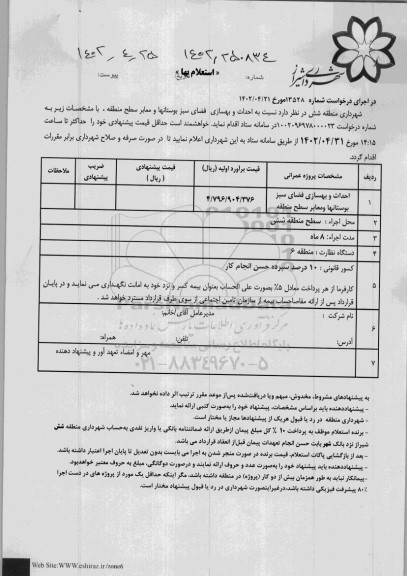 شهرداری شیراز
۱۴۰۲/۲۵۰۸۳۴ ۱۴۰۲/۴/۲۵
«استعلام بها» شماره: تاریخ: پیوست:
در اجرای درخواست شماره ۱۳۵۲۸مورخ ۱۴۰۲/۰۴/۲۱
شهرداری منطقه شش در نظر دارد نسبت به احداث و بهسازی فضای سبز بوستانها و معابر سطح منطقه ، با مشخصات زیر به
شماره درخواست ۱۰۰۲۰۹۶۹۷۸۰۰۰۰۲۳در سامانه ستاد اقدام نماید. خواهشمند است حداقل قیمت پیشنهادی خود را حداکثر تا ساعت
۱۴:۱۵ مورخ ۱۴۰۲/۰۴/۳۱ از طریق سامانه ستاد به این شهرداری اعلام نمایید تا در صورت صرفه و صلاح شهرداری برابر مقررات
اقدام گردد.
ردیف مشخصات پروژه عمرانی قیمت برآورد اولیه (ریال) قیمت پیشنهادی (ریال) ضریب پیشنهادی ملاحظات
۱ احداث و بهسازی فضای سبز بوستانها ومعابر سطح منطقه ۴/۷۹۶/۹۰۴/۳۷۶
۲ محل اجراء : سطح منطقه شش
۳ مدت اجراء: ۸ ماه
۴ دستگاه نظارت : منطقه ۶
۵ کسور قانونی : ۱۰ درصد سپرده حسن انجام کار
کارفرما از هر پرداخت معادل ۵٪ بصورت علی الحساب بعنوان بیمه کسر و نزد خود به امانت نگهداری می نماید و در پایان
قرارداد پس از ارائه مفاصاحساب بیمه از سازمان تامین اجتماعی از سوی طرف قرارداد مسترد خواهد شد .
۶ نام شرکت : مدیرعامل آقای/خانم:
آدرس: تلفن: همراه:
۷ مهر و امضاء تعهد آور و پیشنهاد دهنده
۰۲۱-۸۸۳۴۹۶۷۰-۵
به پیشنهادهای مشروط، مخدوش، مبهم ویا دریافت‌شده پس‌از موعد مقرر ترتیب اثر داده نخواهد شد.
- پیشنهاددهنده باید براساس مشخصات، پیشنهاد خود را به‌صورت کتبی ارائه نماید.
- شهرداری منطقه در رد یا قبول هریک از پیشنهادها مجاز یا مختار است.
- برنده استعلام موظف به پرداخت ۱۰ ٪ کل مبلغ پیمان ازطریق ارائه ضمانتنامه بانکی یا واریز نقدی به‌حساب شهرداری منطقه شش
شیراز نزد بانک شهر بابت حسن انجام تعهدات پیمان قبل‌از انعقاد قرارداد می باشد.
- بعد از بازگشایی پاکات استعلام، قیمت برنده در صورت منجر شدن به اجرا می بایست بدون تعدیل تا پایان اجرا اعتبار داشته باشد.
- پیشنهاددهنده باید پیشنهاد خود را به‌صورت عدد و حروف ارائه نمایند و درصورت دوگانگی، مبلغ به حروف معتبر خواهدبود.
-پیمانکار نباید به طور همزمان بیش از دو کار (پروژه) در منطقه داشته باشد. مگر اینکه حداقل یک مورد از پروژه های در دست اجرا
۸۰٪ پیشرفت فیزیکی داشته باشد،درغیراینصورت شهرداری در رد یا قبول پیشنهاد مختار است.
Web Site:WWW.eshiraz.ir/zone6